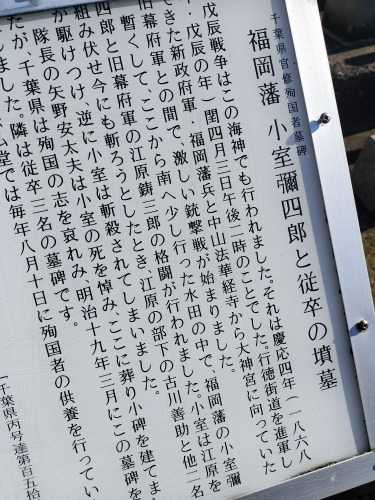 千葉県官修殉国者墓碑
福岡藩 小室彌四郎と従卒の墳墓
戊辰戦争はこの海神でも行われました。それは慶応四年(一八六八
年・戊辰の年)閏四月三日午後二時のことでした。行徳街道を進軍し
てきた新政府軍・福岡藩兵と中山法華経寺から大神宮に向っていた
旧幕府軍との間で、激しい銃撃戦が始まりました。
暫くして、ここから南へ少し行った水田の中で、福岡藩の小室彌
四郎と旧幕府軍の江原鋳三郎の格闘が行われました。小室は江原を
組み伏せ今にも斬ろうとしたとき、江原の部下の古川善助と他二名
が駆けつけ、逆に小室は斬殺されてしまいました。
隊長の矢野安太夫は小室の死を悼み、ここに葬り小碑を建てま
したが、千葉県は殉国の志を哀れみ、明治十九年三月にこの墓碑を
しました。隣は従卒三名の墓碑です。
堂では毎年八月十日に殉国者の供養を行ってい
(千葉県丙号達第百五拾